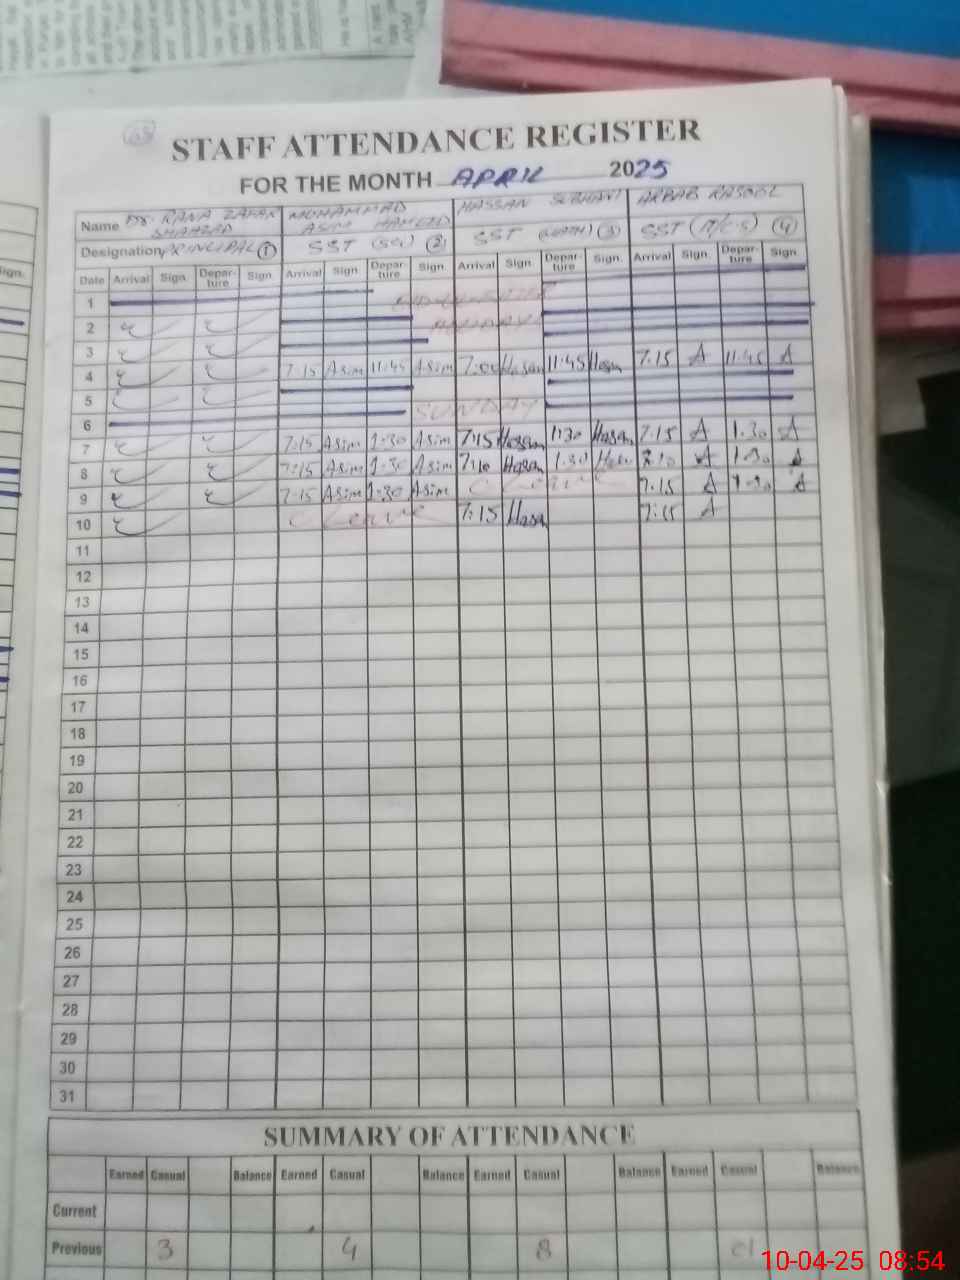 STAFF ATTENDANCE REGISTER
FOR THE MONTH APRIL 2025
Name Dr. RANA ZAFAR SHAHZAD MUHAMMAD ASIM HAMEED HASSAN SUBHANI ARBAB RASOOL
Designation PRINCIPAL (1) SST (Sci) (2) SST (MATH) (3) SST (4)
Date Arrival Sign. Depar-ture Sign. Arrival Sign. Depar-ture Sign. Arrival Sign. Depar-ture Sign. Arrival Sign. Depar-ture Sign.
1
2 HOLIDAY
3
4 7:15 Asim 11:45 Asim 7:00 Hasan 11:45 Hasan 7:15 A 11:45 A
5
6 SUNDAY
7 7:15 Asim 1:30 Asim 7:15 Hassan 1:30 Hasan 7:15 A 1:30 A
8 7:15 Asim 1:30 Asim 7:10 Hasan 1:30 7:10 A 1:30 A
9 7:15 Asim 1:30 Asim C Leave 7:15 A 1:30 A
10 C Leave 7:15 Hasan 7:15 A
11
12
13
14
15
16
17
18
19
20
21
22
23
24
25
26
27
28
29
30
31
SUMMARY OF ATTENDANCE
Earned Casual Balance Earned Casual Balance Earned Casual Balance Earned Casual Balance
Current
Previous 3 4 8 01
10-04-25 08:54